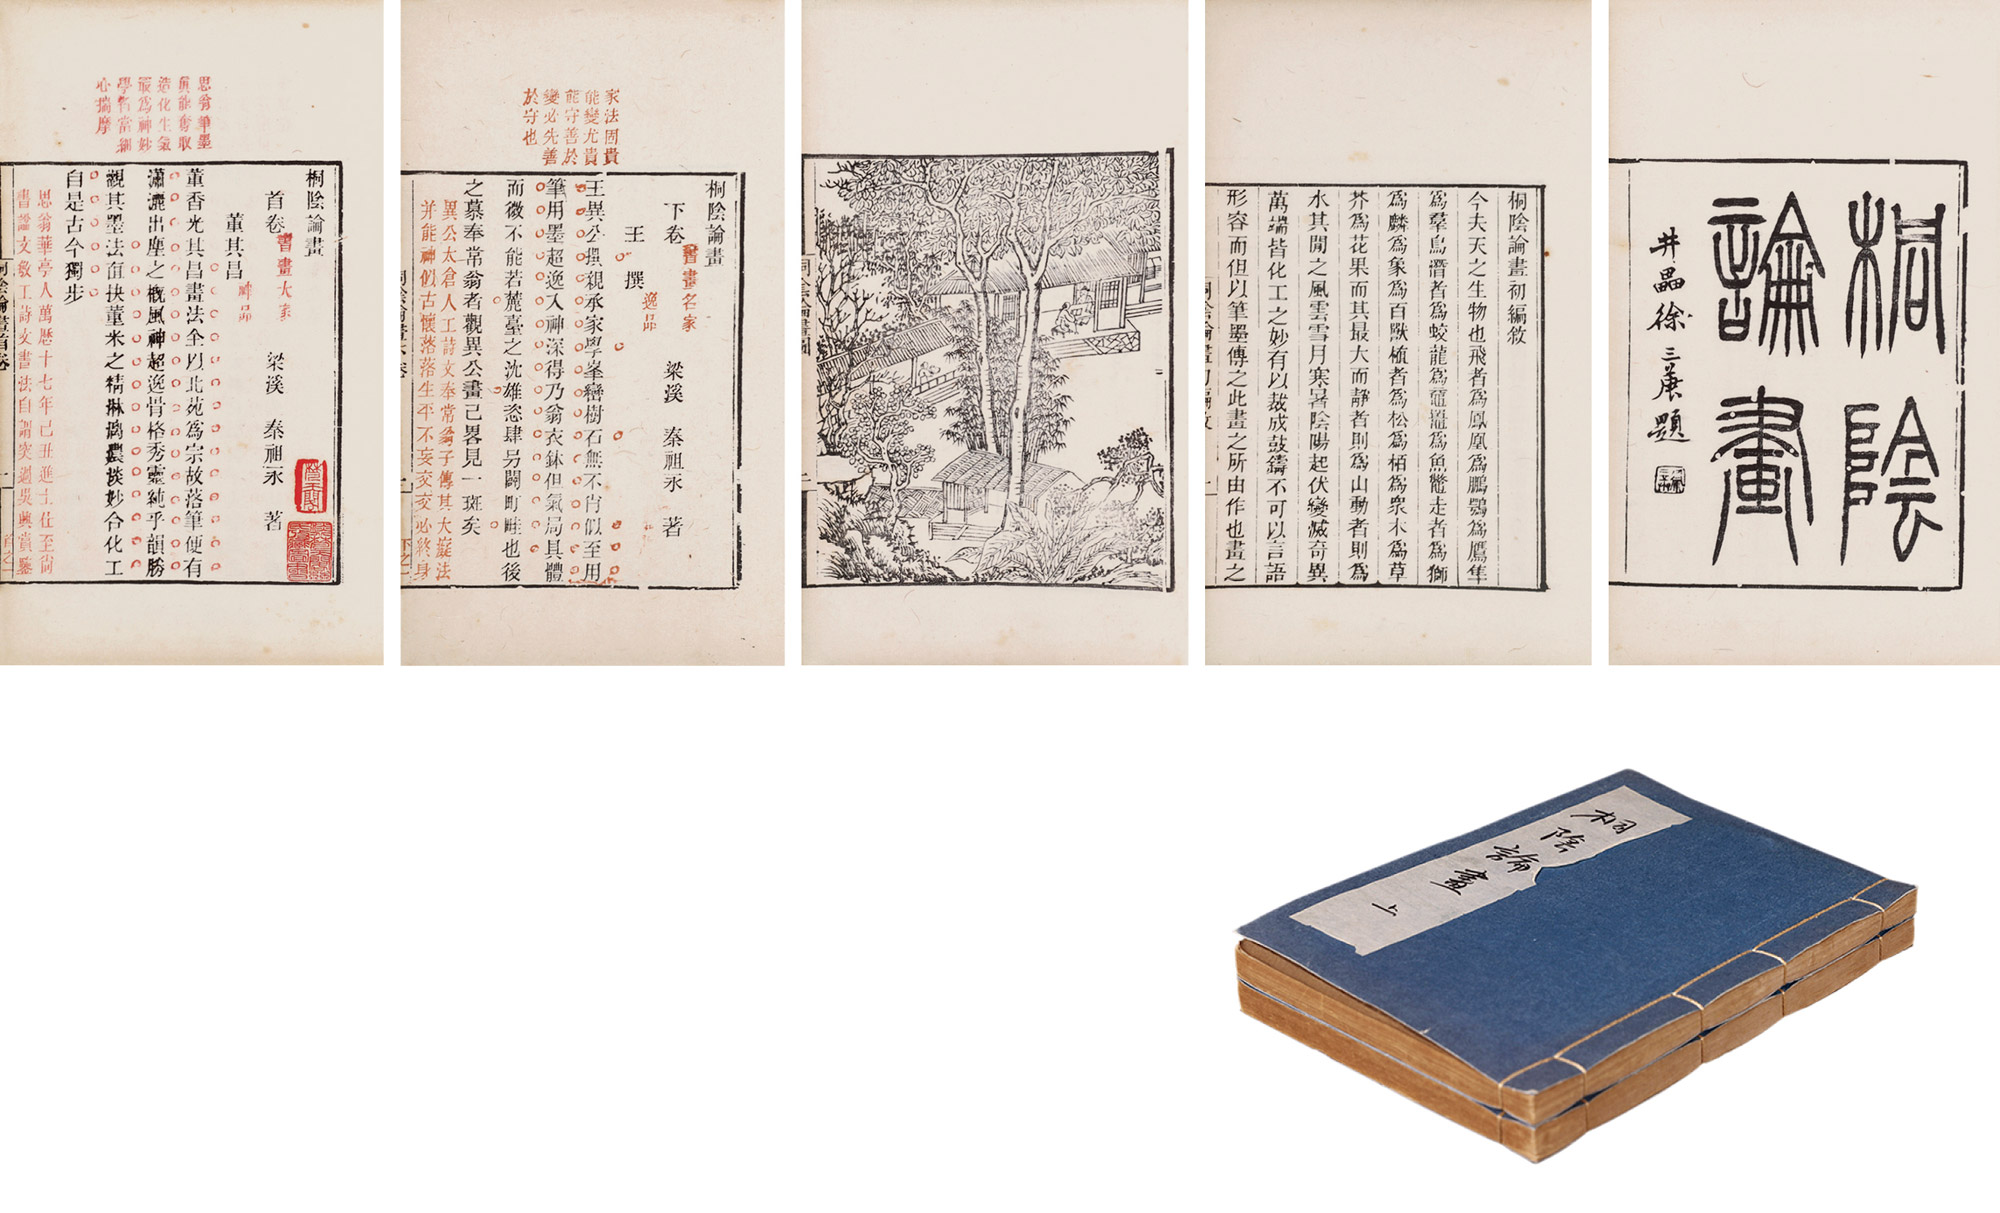 桐陰
論畫
井罍徐三庚題
桐陰論畫初編敘
今夫天之生物也飛者爲鳳凰爲鵬鶚爲鷹隼
爲羣鳥潛者爲蛟龍爲黿鼉爲魚鼈走者爲獅
爲麟爲象爲百獸植者爲松爲栢爲衆木爲草
芥爲花果而其最大而靜者則爲山動者則爲
水其間之風雲雪月寒暑陰陽起伏變滅奇異
萬端皆化工之妙有以裁成鼓鑄不可以言語
形容而但以筆墨傳之此畫之所由作也畫之
桐陰論畫初編敘
桐陰論畫圖
家法固貴
能變尤貴
能守善於
變必先善
於守也
桐陰論畫
下卷 書畫名家 梁溪 秦祖永 著
王 撰 逸品
王異公撰親承家學峯巒樹石無不肖似至用
筆用墨超逸入神深得乃翁衣鉢但氣局具體
而微不能若麓臺之沈雄恣肆另闢町畦也後
之慕奉常翁者觀異公畫己畧見一斑矣
異公太倉人工詩文奉常翁子傳其大癡法
并能神似古懷落落生平不妄交交必終身
桐陰論畫下卷
思翁筆墨
眞能奪取
造化生氣
最爲神妙
學者當細
心揣摩
桐陰論畫
首卷 書畫大家 梁溪 秦祖永 著
董其昌 神品
董香光其昌畫法全以北苑爲宗故落筆便有
瀟灑出塵之概風神超逸骨格秀靈純乎韻勝
觀其墨法直抉董米之精淋漓濃淡妙合化工
自是古今獨步
思翁華亭人萬歷十七年己丑進士仕至尙
書諡文敏工詩文書法自謂突過吳興賞鑒
桐陰論畫首卷
桐陰論畫 上